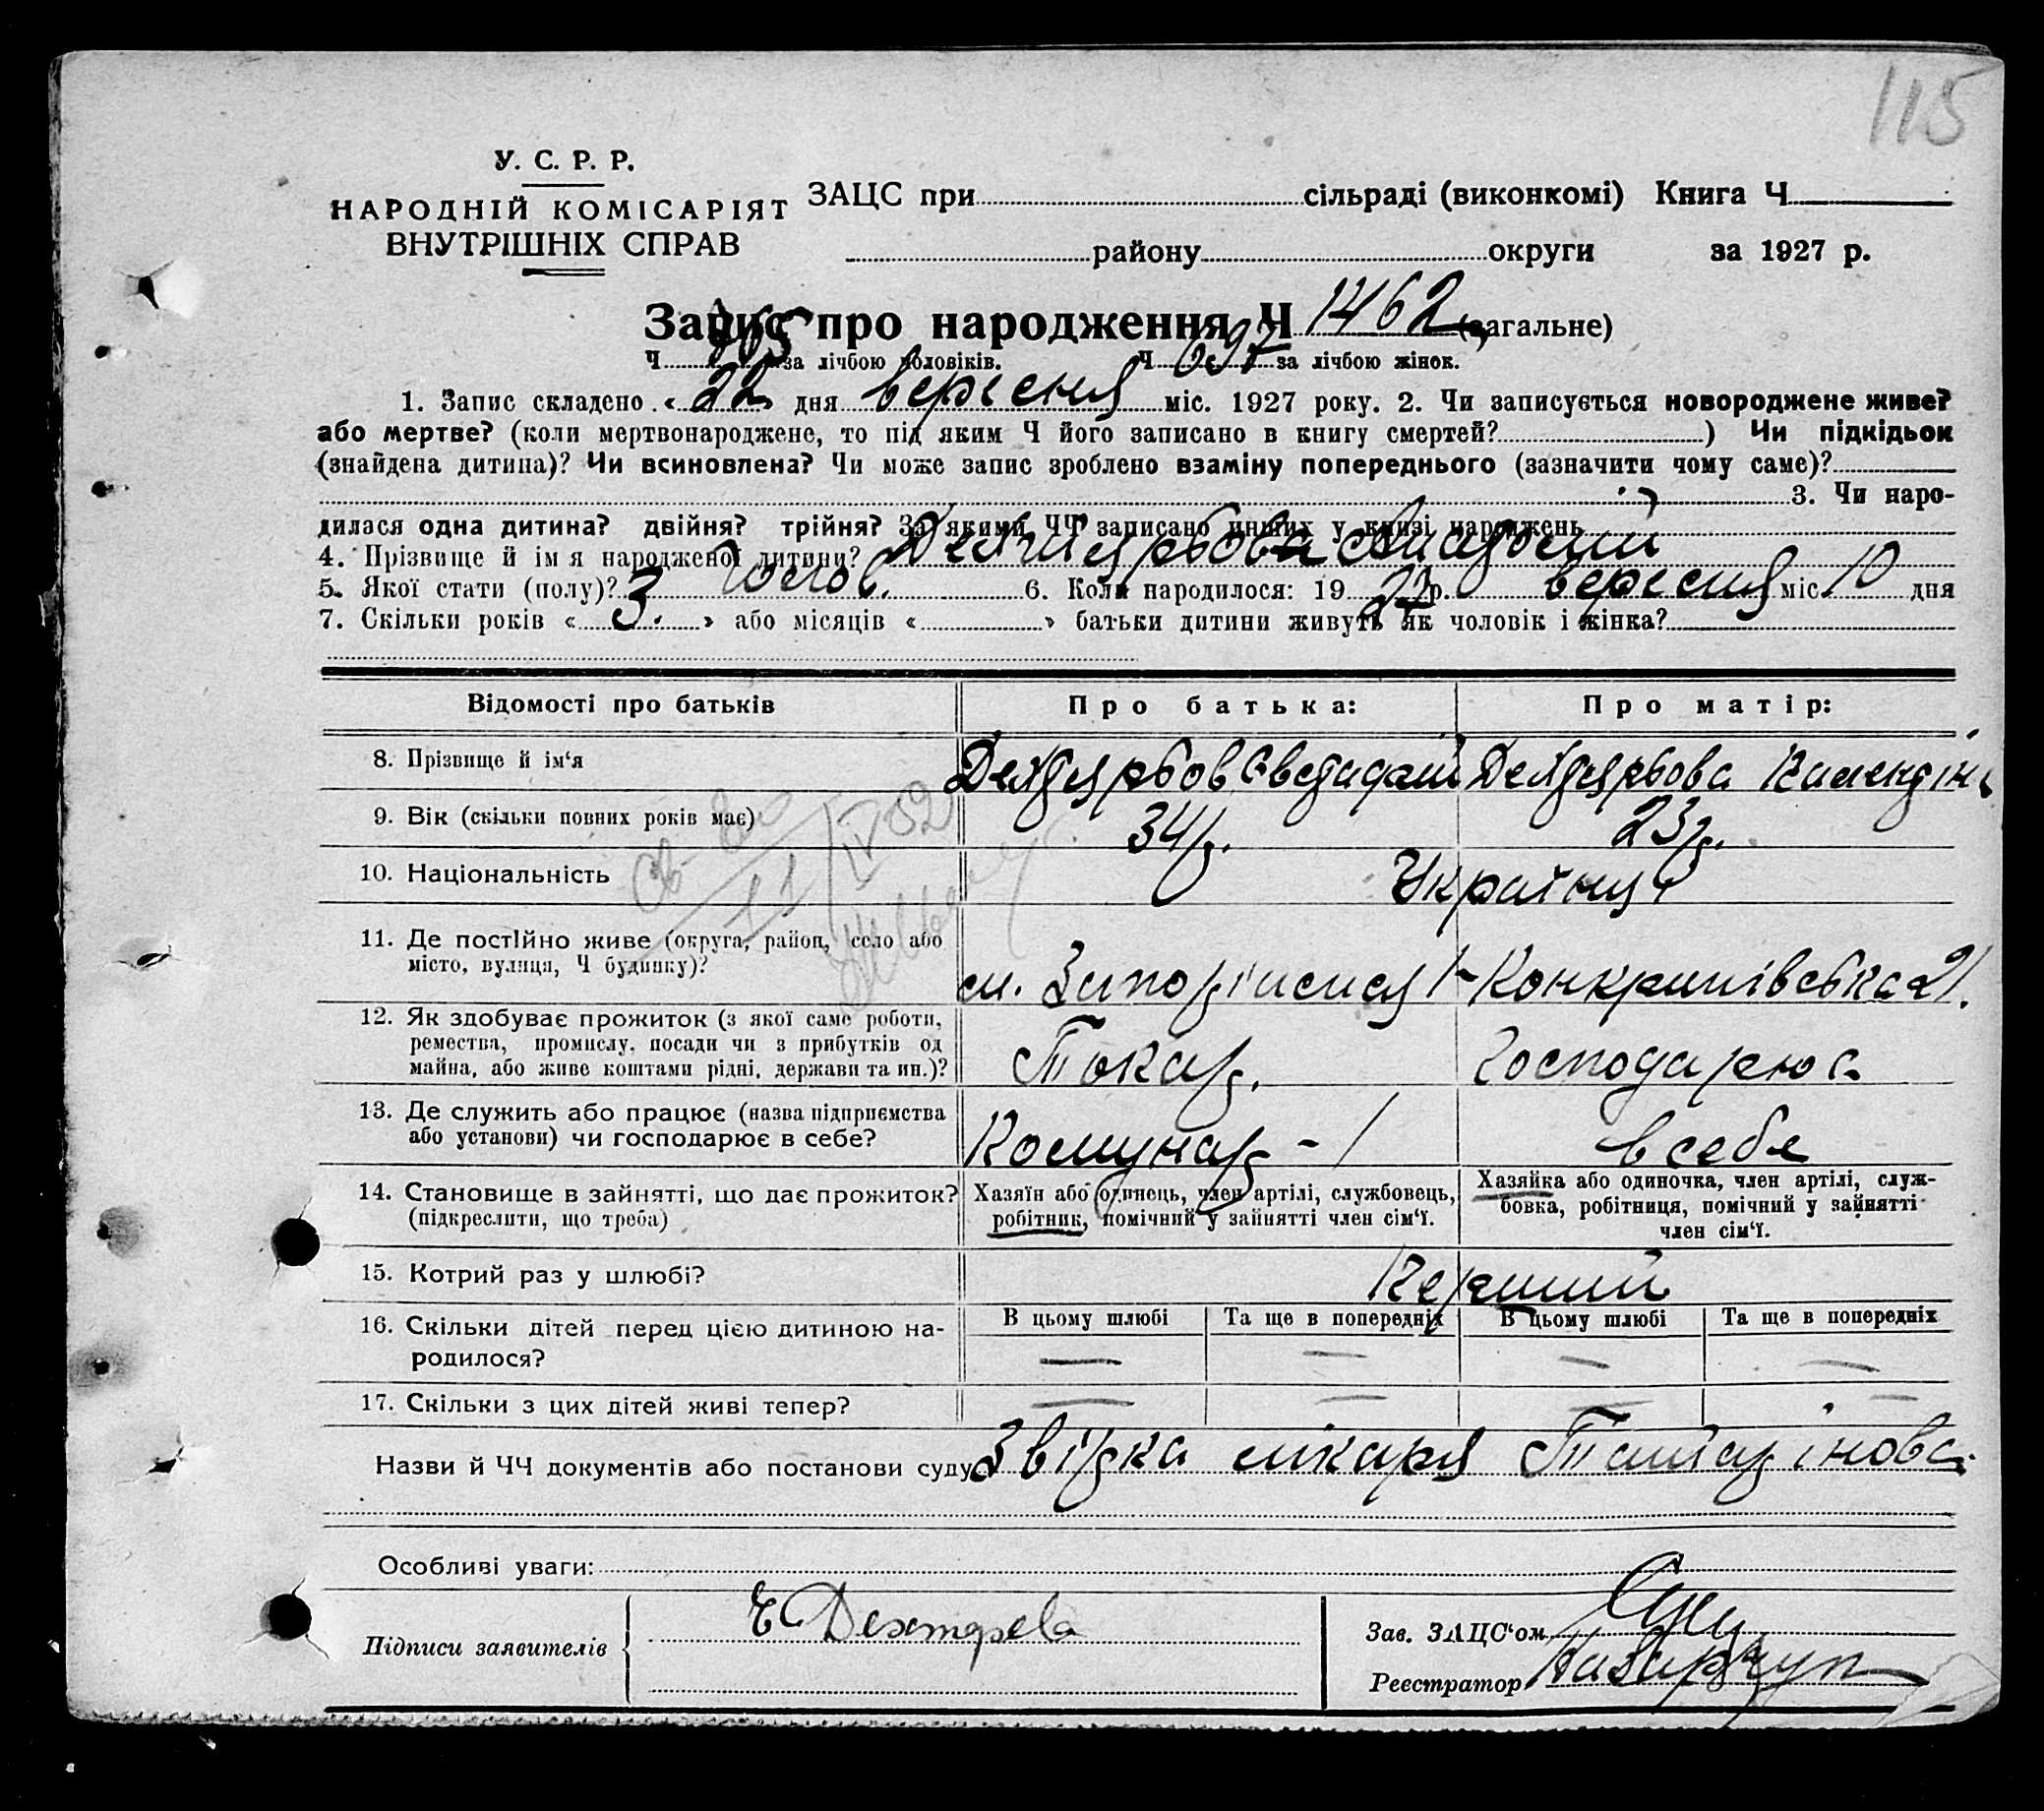 115
У. С. Р. Р.
НАРОДНІЙ КОМІСАРІЯТ
ВНУТРІШНІХ СПРАВ
ЗАЦС при сільраді (виконкомі) Книга Ч
району округи за 1927 р.
Запис про народження Ч 1462 (загальне)
Ч 765 за лічбою чоловіків. Ч 697 за лічбою жінок.
1. Запис складено „ 22 " дня вересня міс. 1927 року. 2. Чи записується новороджене живе?
або мертве? (коли мертвонароджене, то під яким Ч його записано в книгу смертей? ) Чи підкідьок
(знайдена дитина)? Чи всиновлена? Чи може запис зроблено взаміну попереднього (зазначити чому саме)?
3. Чи наро-
дилася одна дитина? двійня? трійня? За якими ЧЧ записано инших у книзі народжень
4. Прізвище й ім я народженої дитини?
5. Якої стати (полу)? чолов. 6. Коли народилося: 19 27 р. вересня міс. 10 дня
7. Скільки років « 3. » або місяців « » батьки дитини живуть як чоловік і жінка?
Відомості про батьків
Про батька:
Про матір:
8. Прізвище й ім‘я
9. Вік (скільки повних років має)
34 р. 23 р.
10. Національність
Українці
11. Де постійно живе (округа, район, село або
місто, вулиця, Ч будинку)?
м. Запоріжжя 21.
12. Як здобуває прожиток (з якої саме роботи,
ремества, промислу, посади чи з прибутків од
майна, або живе коштами рідні, держави та ин.)?
Токар. Господарює
13. Де служить або працює (назва підприємства
або установи) чи господарює в себе?
Комунар - 1 в себе
14. Становище в зайнятті, що дає прожиток?
(підкреслити, що треба)
Хазяїн або одинець, член артілі, службовець,
робітник, помічний у зайнятті член сім‘ї.
Хазяйка або одиночка, член артілі, служ-
бовка, робітниця, помічний у зайнятті
член сім‘ї.
15. Котрий раз у шлюбі?
Перший
16. Скільки дітей перед цією дитиною на-
родилося?
В цьому шлюбі Та ще в попередніх В цьому шлюбі Та ще в попередніх
— — — —
17. Скільки з цих дітей живі тепер?
— — — —
Назви й ЧЧ документів або постанови суду Звідка лікаря
Особливі уваги:
Підписи заявителів
Зав. ЗАЦС‘ом
Реєстратор Назарчук